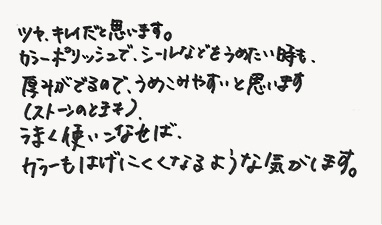 ツヤ、キレイだと思います。
カラーポリッシュで、シールなどをうめたい時も、
厚みがでるので、うめこみやすいと思います
(ストーンのときも)、
うまく使いこなせば、
カラーもはげにくくなるような気がします。